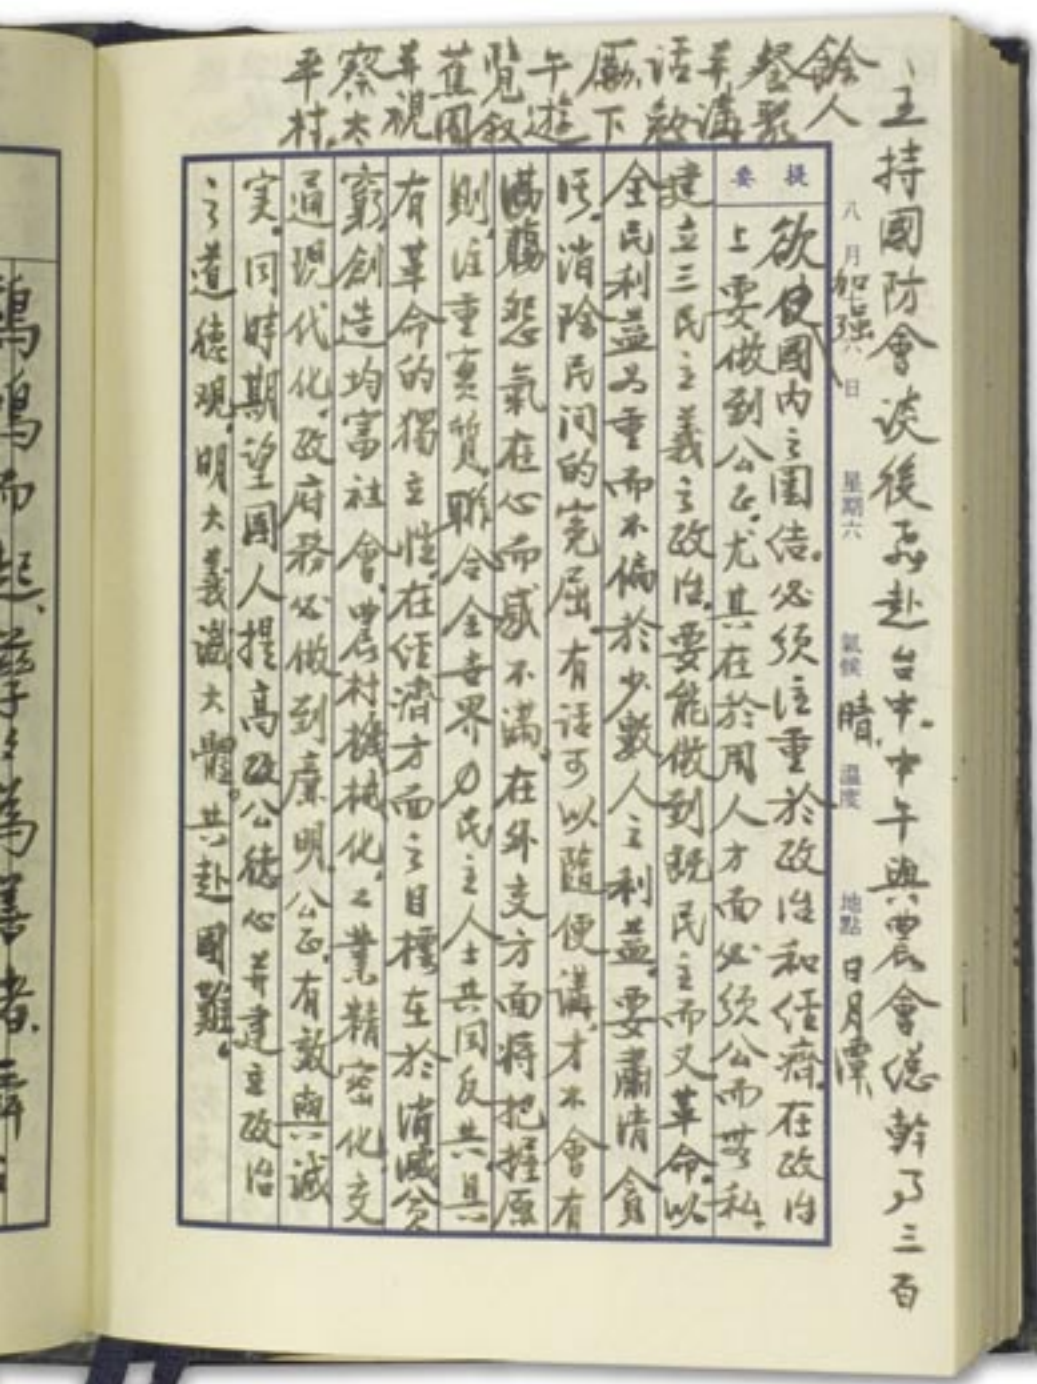 主持國防會談後再赴台中。中午與農會總幹事三百
餘人
餐聚
並講
話款
勵下
午遊
覽叙
蕉園
並視
察太
平村。
八月 六日 星期六 氣候 晴、 溫度 地點 日月潭、
提要
加强
欲使國內之團結。必須注重於政治和經濟。在政治
上要做到公正。尤其在於用人方面必須公而無私。
建立三民主義之政治。要能做到既民主而又革命。以
全民利益為重而不偏於少數人之利益。要肅清貪
污。消除民间的寃屈。有話可以隨便講。才不會有
滿腸怨氣在心而感不滿。在外交方面將把握原
則。注重實質。聯合全世界の民主人士共同反共。具
有革命的獨立性。在經濟方面之目標在於消滅貧
窮。創造均富社會。農村機械化。工業精密化。交
通現代化。政府務必做到廉明。公正。有效與诚
実。同時期望國人提高政公德心并建立政治
之道德观。明大義識大體。共赴國難。
鷄鳴而起、孳々為善者、